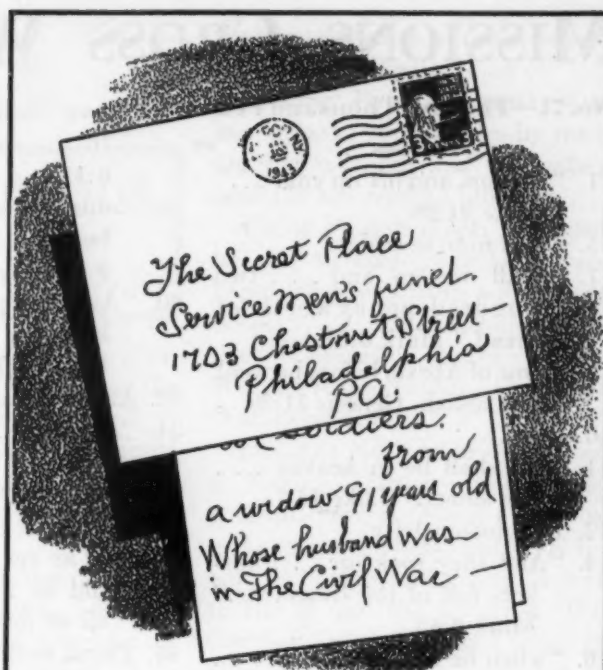 1943
The Secret Place
Service Men's fund.
1703 Chestnut Street
Philadelphia
P.A.
soldiers.
from
a widow 91 years old
Whose husband was
in The Civil War